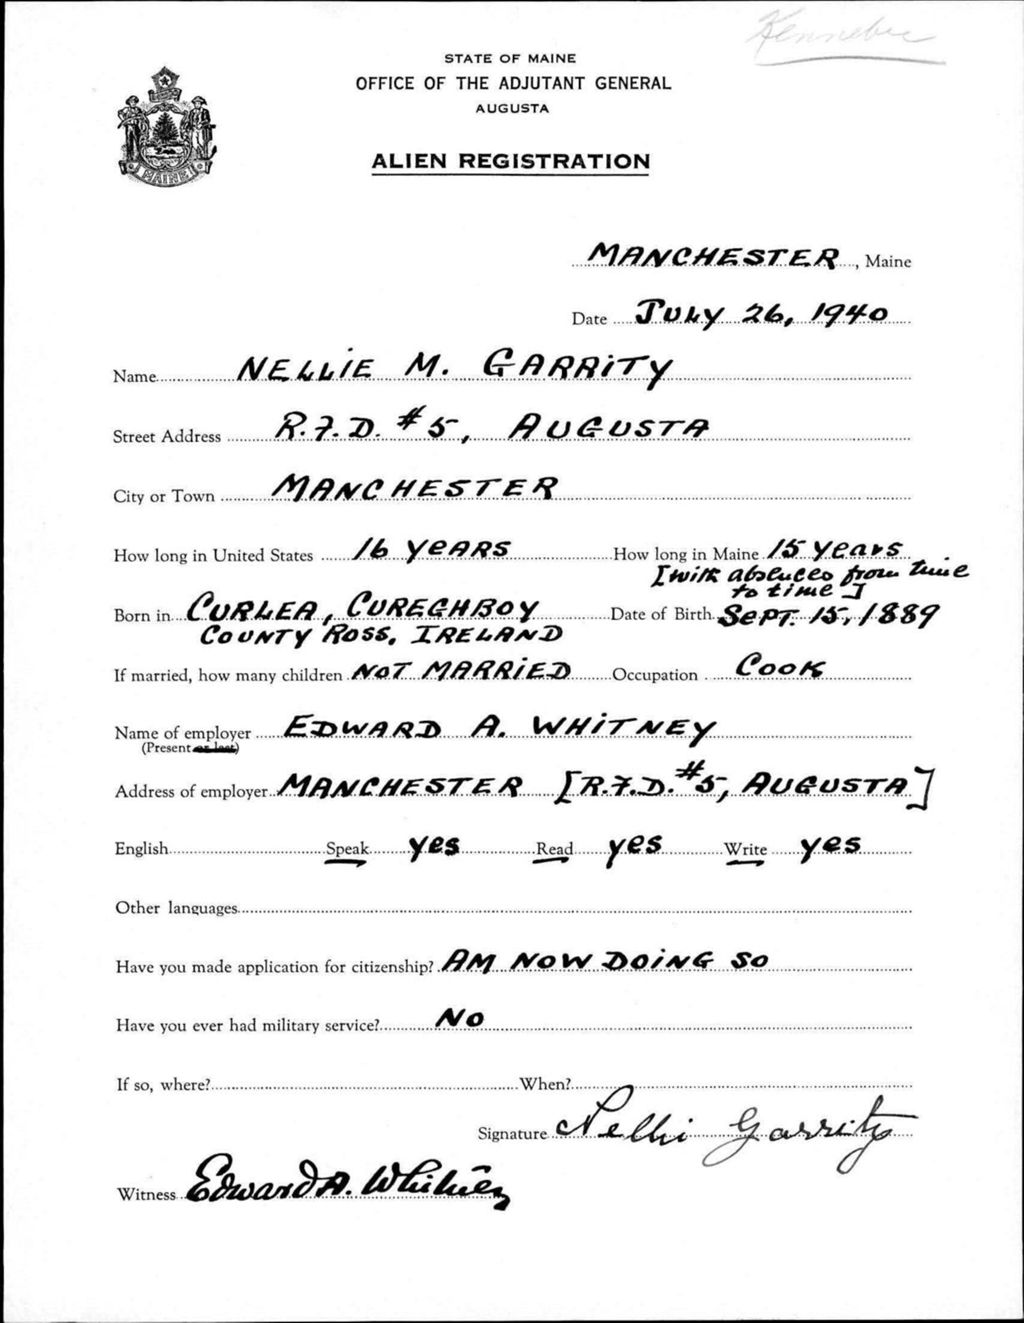 Kennebec
STATE OF MAINE
OFFICE OF THE ADJUTANT GENERAL
AUGUSTA
ALIEN REGISTRATION
MAINE
MANCHESTER, Maine
Date July 26, 1940
Name NELLIE M. GARRITY
Street Address R.F.D. #5, AUGUSTA
City or Town MANCHESTER
How long in United States 16 years How long in Maine 15 years
[with absences from time
to time]
Born in CURLEA, CUREGHBOY Date of Birth SEPT. 15, 1889
COUNTY ROSS, IRELAND
If married, how many children NOT MARRIED Occupation COOK
Name of employer EDWARD A. WHITNEY
(Present or last)
Address of employer MANCHESTER [R.F.D. #5, AUGUSTA]
English Speak yes Read yes Write yes
Other languages
Have you made application for citizenship? AM NOW DOING SO
Have you ever had military service? NO
If so, where? When?
Signature Nellie Garrity
Witness Edward A. Whitney